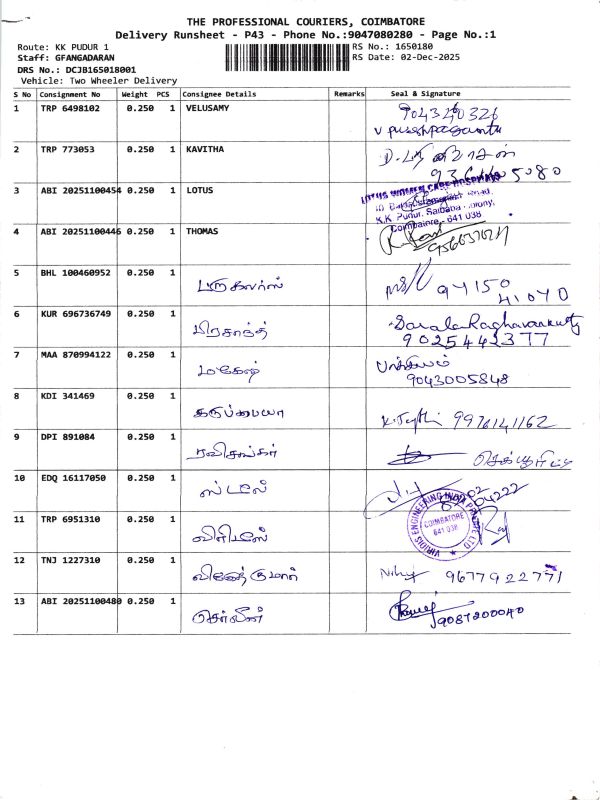 THE PROFESSIONAL COURIERS, COIMBATORE
Delivery Runsheet - P43 - Phone No.:9047080280 - Page No.:1
Route: KK PUDUR 1 RS No.: 1650180
Staff: GFANGADARAN RS Date: 02-Dec-2025
DRS No.: DCJB165018001
Vehicle: Two Wheeler Delivery
S No Consignment No Weight PCS Consignee Details Remarks Seal & Signature
1 TRP 6498102 0.250 1 VELUSAMY 904340326
2 TRP 773053 0.250 1 KAVITHA
3 ABI 20251100454 0.250 1 LOTUS
LOTUS WOMEN CARE HOSPITAL
K.K Pudur, Saibaba Colony,
Coimbatore - 641 038
4 ABI 20251100446 0.250 1 THOMAS
5 BHL 100460952 0.250 1 94150
41070
6 KUR 696736749 0.250 1 பிரசாந்த் Sarala Raghavankutty
9025442377
7 MAA 870994122 0.250 1 மகேஷ்
9043005848
8 KDI 341469 0.250 1 கருப்பையா 9976141162
9 DPI 891084 0.250 1 ரவிசங்கர்
10 EDQ 16117050 0.250 1
04222
11 TRP 6951310 0.250 1
VARIOUS ENGINEERING INDIA PRIVATE LTD
COIMBATORE
641 038
12 TNJ 1227310 0.250 1 வினோத்குமார் 9677922771
13 ABI 20251100480 0.250 1 செர்லீன்
9087200040